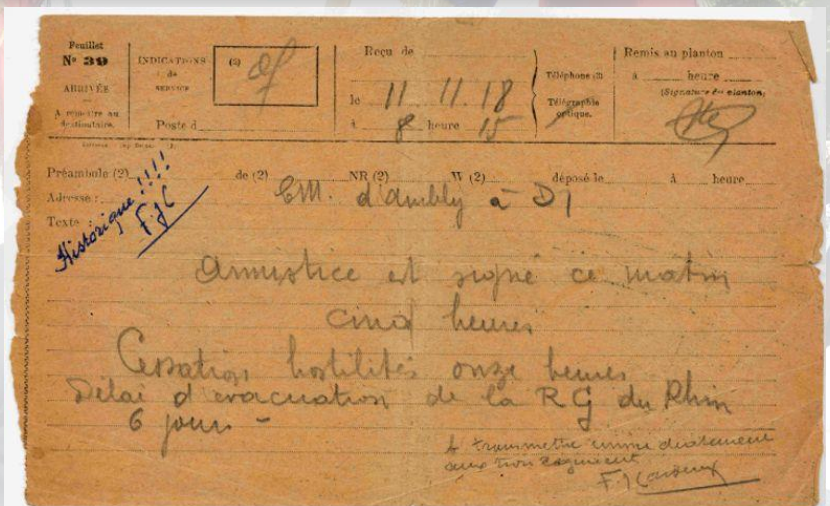 Feuillet
N° 39
ARRIVÉS
A remettre au
destinataire.
INDICATIONS
de
SERVICE
Poste d
(2)
Reçu de
le 11 11. 18
à 8 heure 15
Téléphone (2)
Télégraphie
optique.
Remis au planton
à heure
(Signature du planton)
Préambule (2) de (2) NR (2) W (2) déposé le à heure
Adresse : d'Ambly à DI
Texte :
Historique !!!!
F.J C
Armistice est signé ce matin
cinq heures
Cessation hostilités onze heures
Délai d'évacuation de la RG du Rhin
6 jours -
A transmettre immédiatement
aux trois régiments